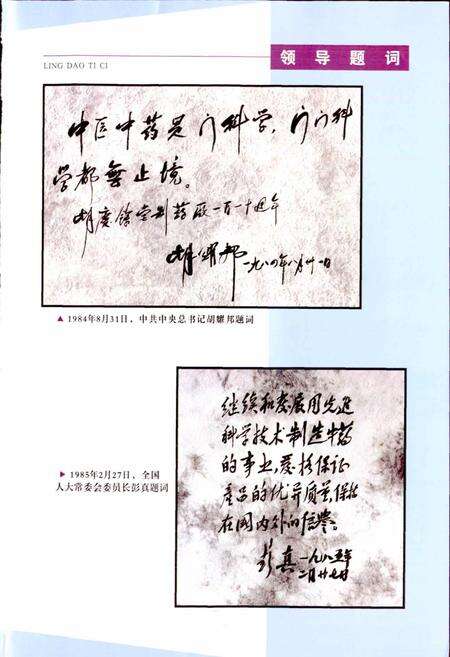 领导题词
LING DAO TI CI
中医中药是门科学，门门科
学都无止境。
胡庆馀堂制药厂一百一十周年
胡耀邦 一九八四年八月卅一日
▲ 1984年8月31日，中共中央总书记胡耀邦题词
继续和发展用先进
科学技术制造中药
的事业，严格保证
产品的优异质量，保持
在国内外的信誉。
彭真 一九八五年
二月廿七日
▶ 1985年2月27日，全国
人大常委会委员长彭真题词